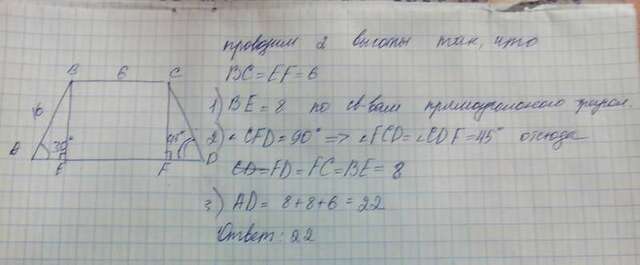 проводим 2 высоты так, что
BC = EF = 6
1) BE = 8 по св-вам прямоугольного треуг.
2) ∠CFD = 90° => ∠FCD = ∠CDF = 45° отсюда
CD = FD = FC = BE = 8
3) AD = 8+8+6 = 22
Ответ: 22
B 6 C
30° 45°
E F D